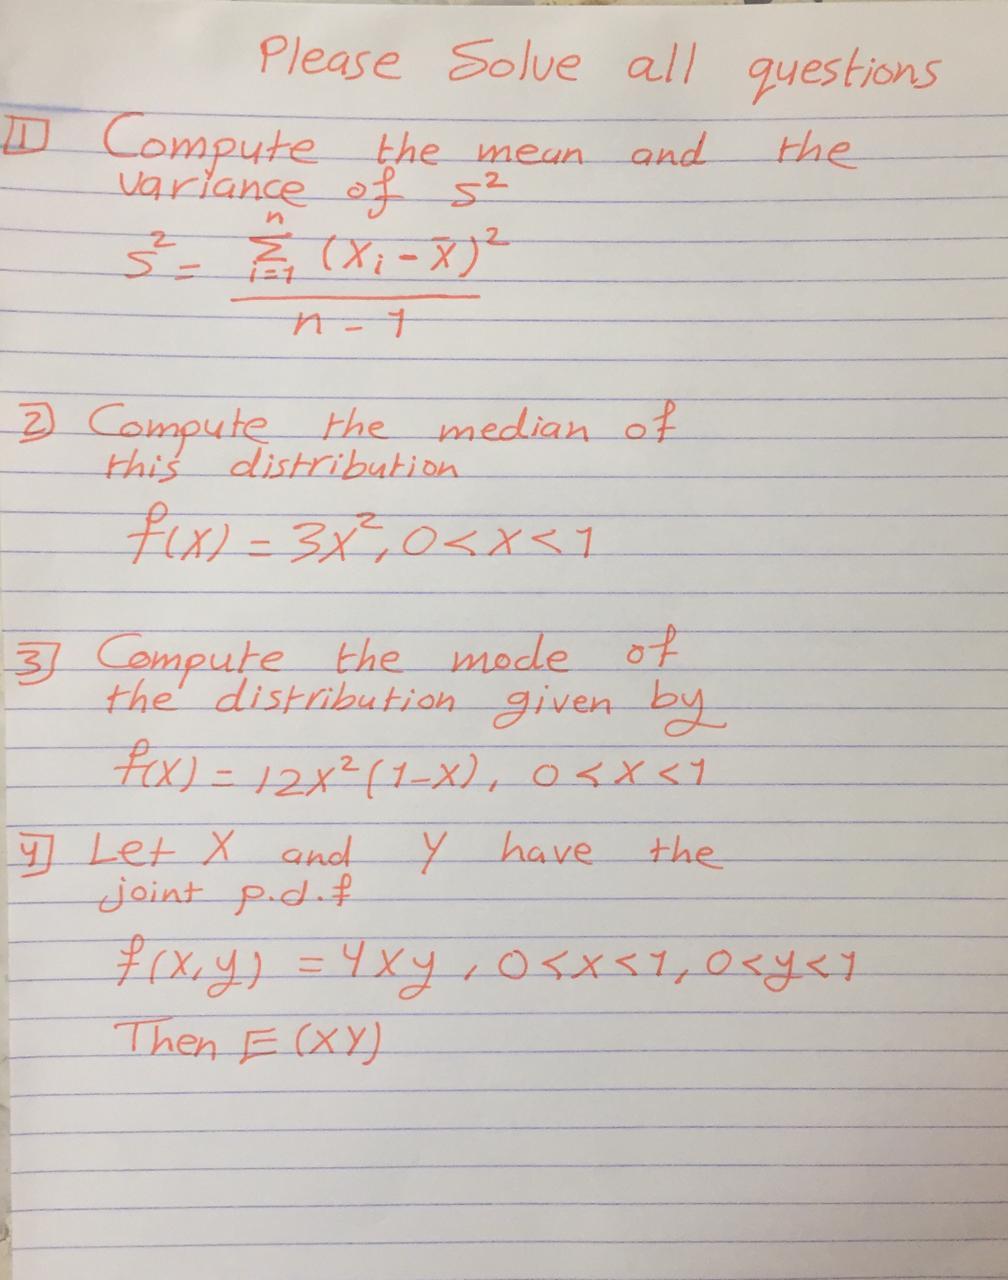 Please Solve all questions
1] Compute the mean and the
variance of s²
s² = Σⁿᵢ₌₁ (xᵢ - x̄)² / n - 1
2] Compute the median of
this distribution
f(x) = 3x², 0 < x < 1
3] Compute the mode of
the distribution given by
f(x) = 12x²(1-x), 0 < x < 1
4] Let X and Y have the
joint p.d.f
f(x,y) = 4xy, 0 < x < 1, 0 < y < 1
Then E(XY)